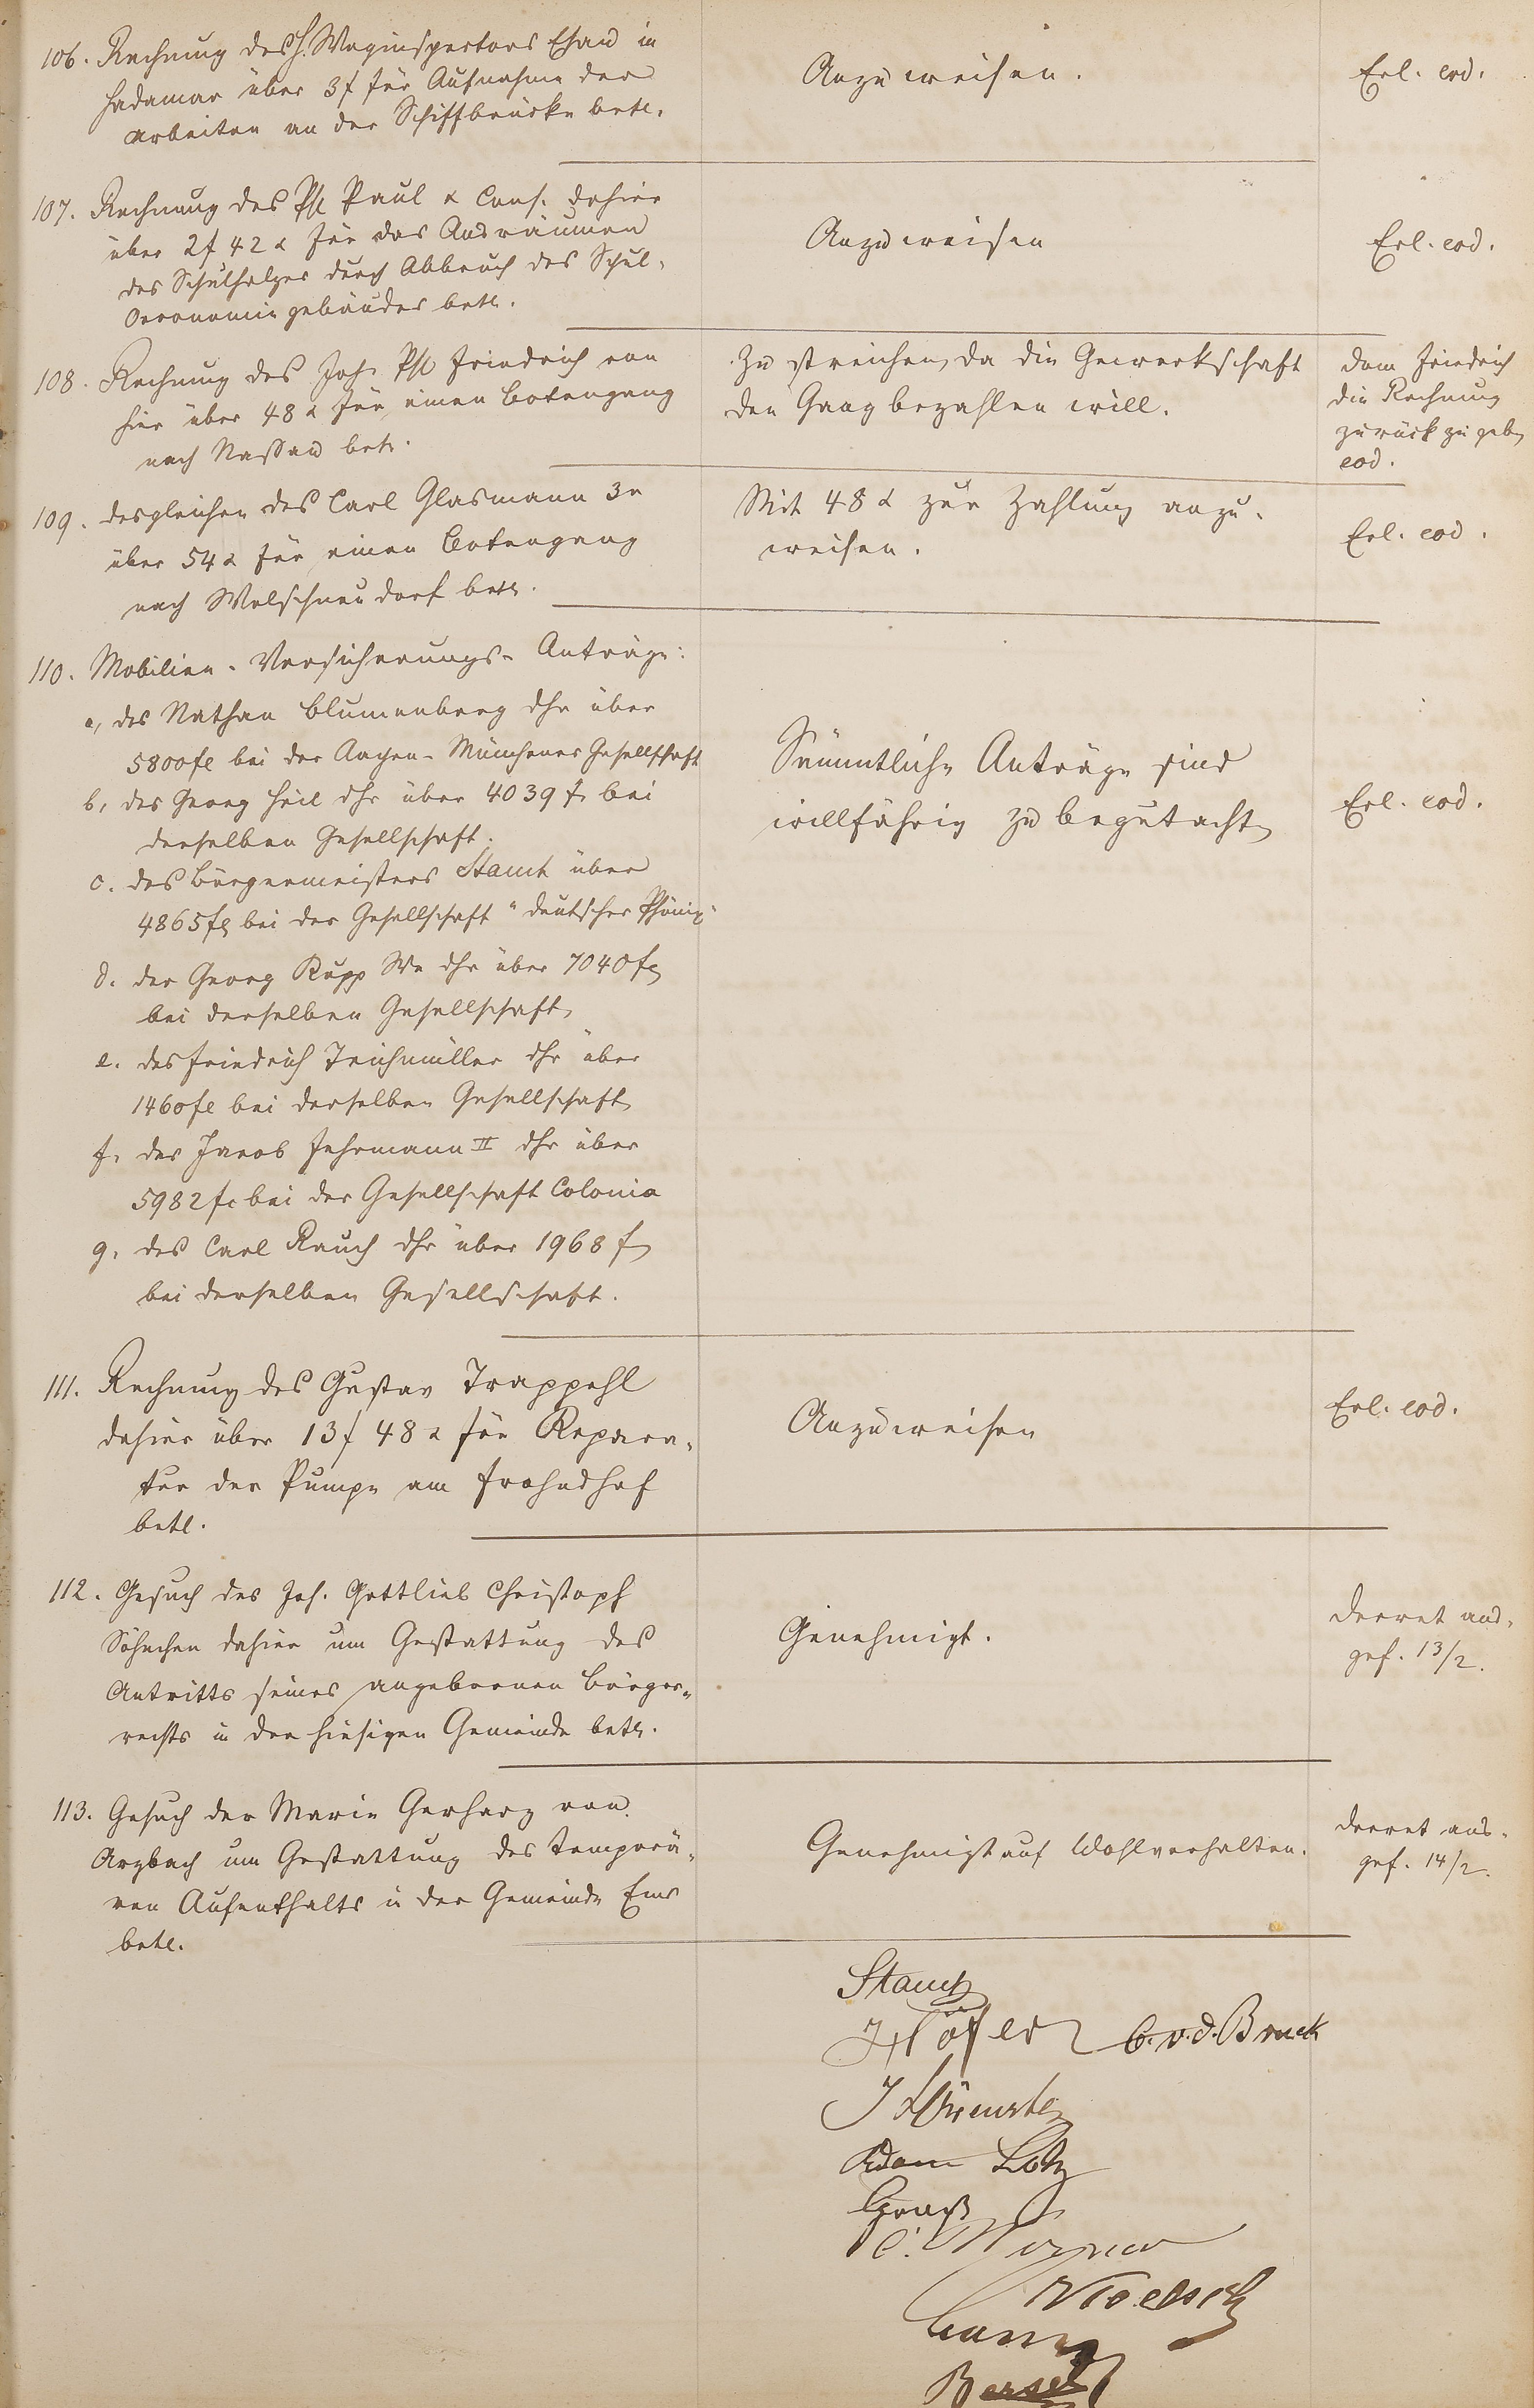 106. Rechnung des H. Weginspectors Esau in
Hadamar über 3 f für Aufnahme der
Arbeiten an der Schiffbrücke betr.
Anzuweisen.
Erl. eod.
107. Rechnung des Ph. Paul & Cons. dahier
über 2 f 42 x für das Ausräumen
des Schulholzes durch Abbruch des Schul-
Oeconomiegebäudes betr.
Anzuweisen
Erl. eod.
108. Rechnung des Joh. Ph. Friedrich von
hier über 48 x für einen Botengang
nach Nassau betr.
Zu streichen, da die Gewerkschaft
den Gang bezahlen will.
Dem Friedrich
die Rechnung
zurück zu geben
eod.
109. Desgleichen des Carl Glasmann 3r
über 54 x für einen Botengang
nach Welschneudorf betr.
Mit 48 x zur Zahlung anzu-
weisen.
Erl. eod.
110. Mobilien-Versicherungs-Anträge:
a, des Nathan Blumenberg dhr über
5800 fl bei der Aachen-Münchener Gesellschaft
b, des Georg Heil dhr über 4039 f. bei
derselben Gesellschaft.
c. des Bürgermeisters Stamm über
4865 fl bei der Gesellschaft "Deutscher Phönix"
d. der Georg Rupp We dhr über 7040 fl
bei derselben Gesellschaft,
e. des Friedrich Teichmüller dhr über
1460 fl bei derselben Gesellschaft,
f. des Jacob Fuhrmann II dhr über
5982 fl bei der Gesellschaft Colonia
g. des Carl Rauch dhr über 1968 fl
bei derselben Gesellschaft.
Sämmtliche Anträge sind
willfährig zu begutachten
Erl. eod.
111. Rechnung des Gustav Trappehl
dahier über 13 f 48 x für Repara-
tur der Pumpe am Frohndhof
betr.
Anzuweisen
Erl. eod.
112. Gesuch des Joh. Gottlieb Christoph
Söhnchen dahier um Gestattung des
Antritts seines angebornen Bürger-
rechts in der hiesigen Gemeinde betr.
Genehmigt.
Decret aus-
gef. 13/2.
113. Gesuch der Marie Gerharz von
Arzbach um Gestattung des temporä-
ren Aufenthalts in der Gemeinde Ems
betr.
Genehmigt auf Wohlverhalten.
Decret aus-
gef. 14/2.
Höfer C. v. d. Bruck
Adam Lotz